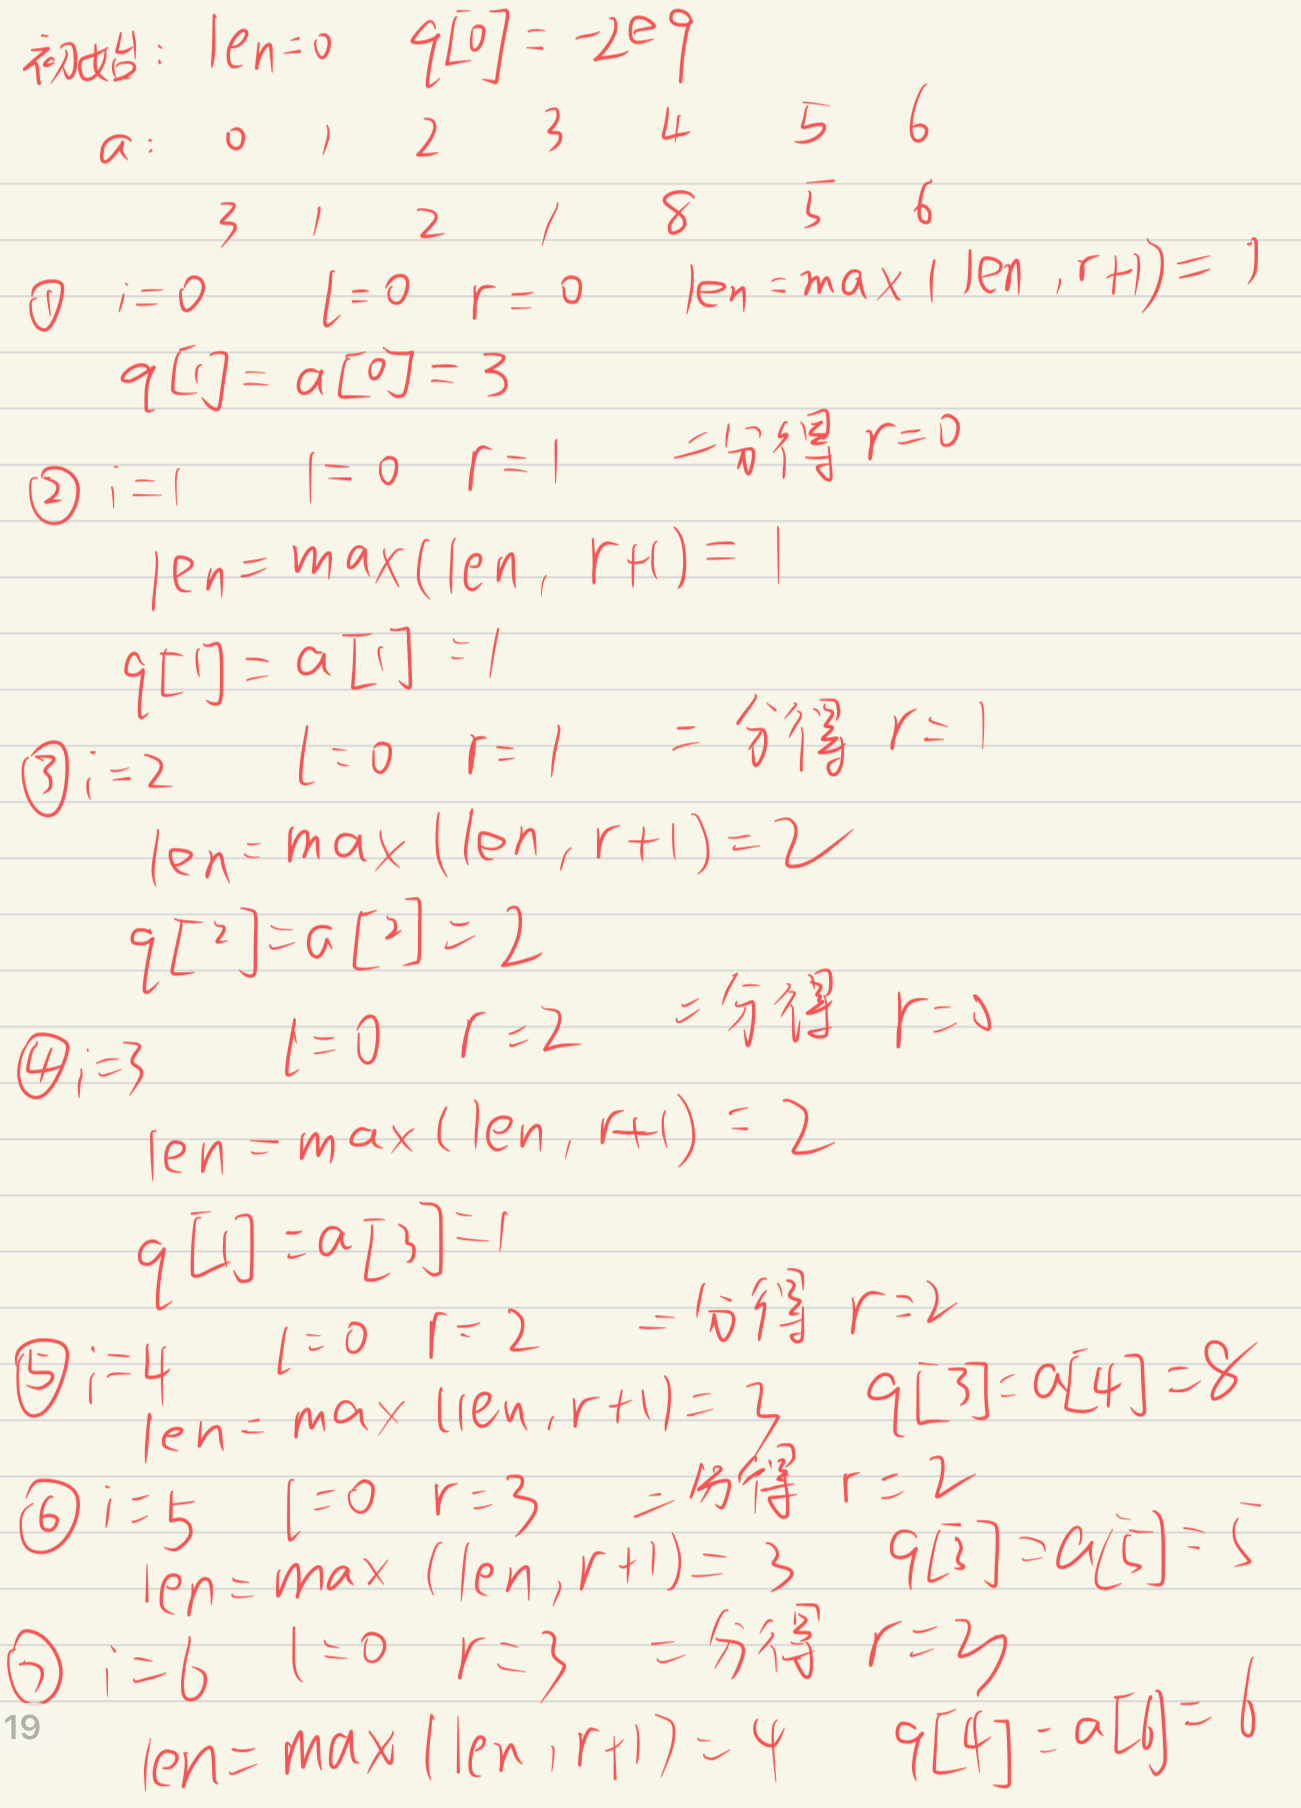 初始: len=0 q[0]=-2e9
a: 0 1 2 3 4 5 6
3 1 2 1 8 5 6
① i=0 l=0 r=0 len=max(len,r+1)=1
q[1]=a[0]=3
② i=1 l=0 r=1 二分得 r=0
len=max(len,r+1)=1
q[1]=a[1]=1
③ i=2 l=0 r=1 二分得 r=1
len=max(len,r+1)=2
q[2]=a[2]=2
④ i=3 l=0 r=2 二分得 r=0
len=max(len,r+1)=2
q[1]=a[3]=1
⑤ i=4 l=0 r=2 二分得 r=2
len=max(len,r+1)=3 q[3]=a[4]=8
⑥ i=5 l=0 r=3 二分得 r=2
len=max(len,r+1)=3 q[3]=a[5]=5
⑦ i=6 l=0 r=3 二分得 r=3
19
len=max(len,r+1)=4 q[4]=a[6]=6